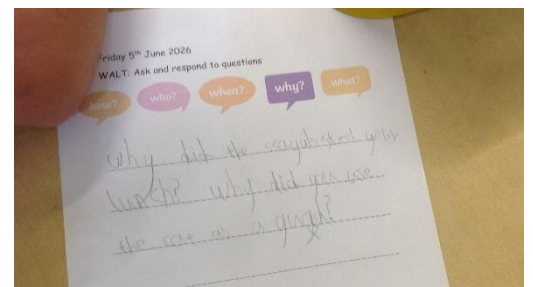 Friday 5th June 2026
WALT: Ask and respond to questions
how? who? when? why? what?
why did the seagull steal your
lunch? why did you use
the car as a